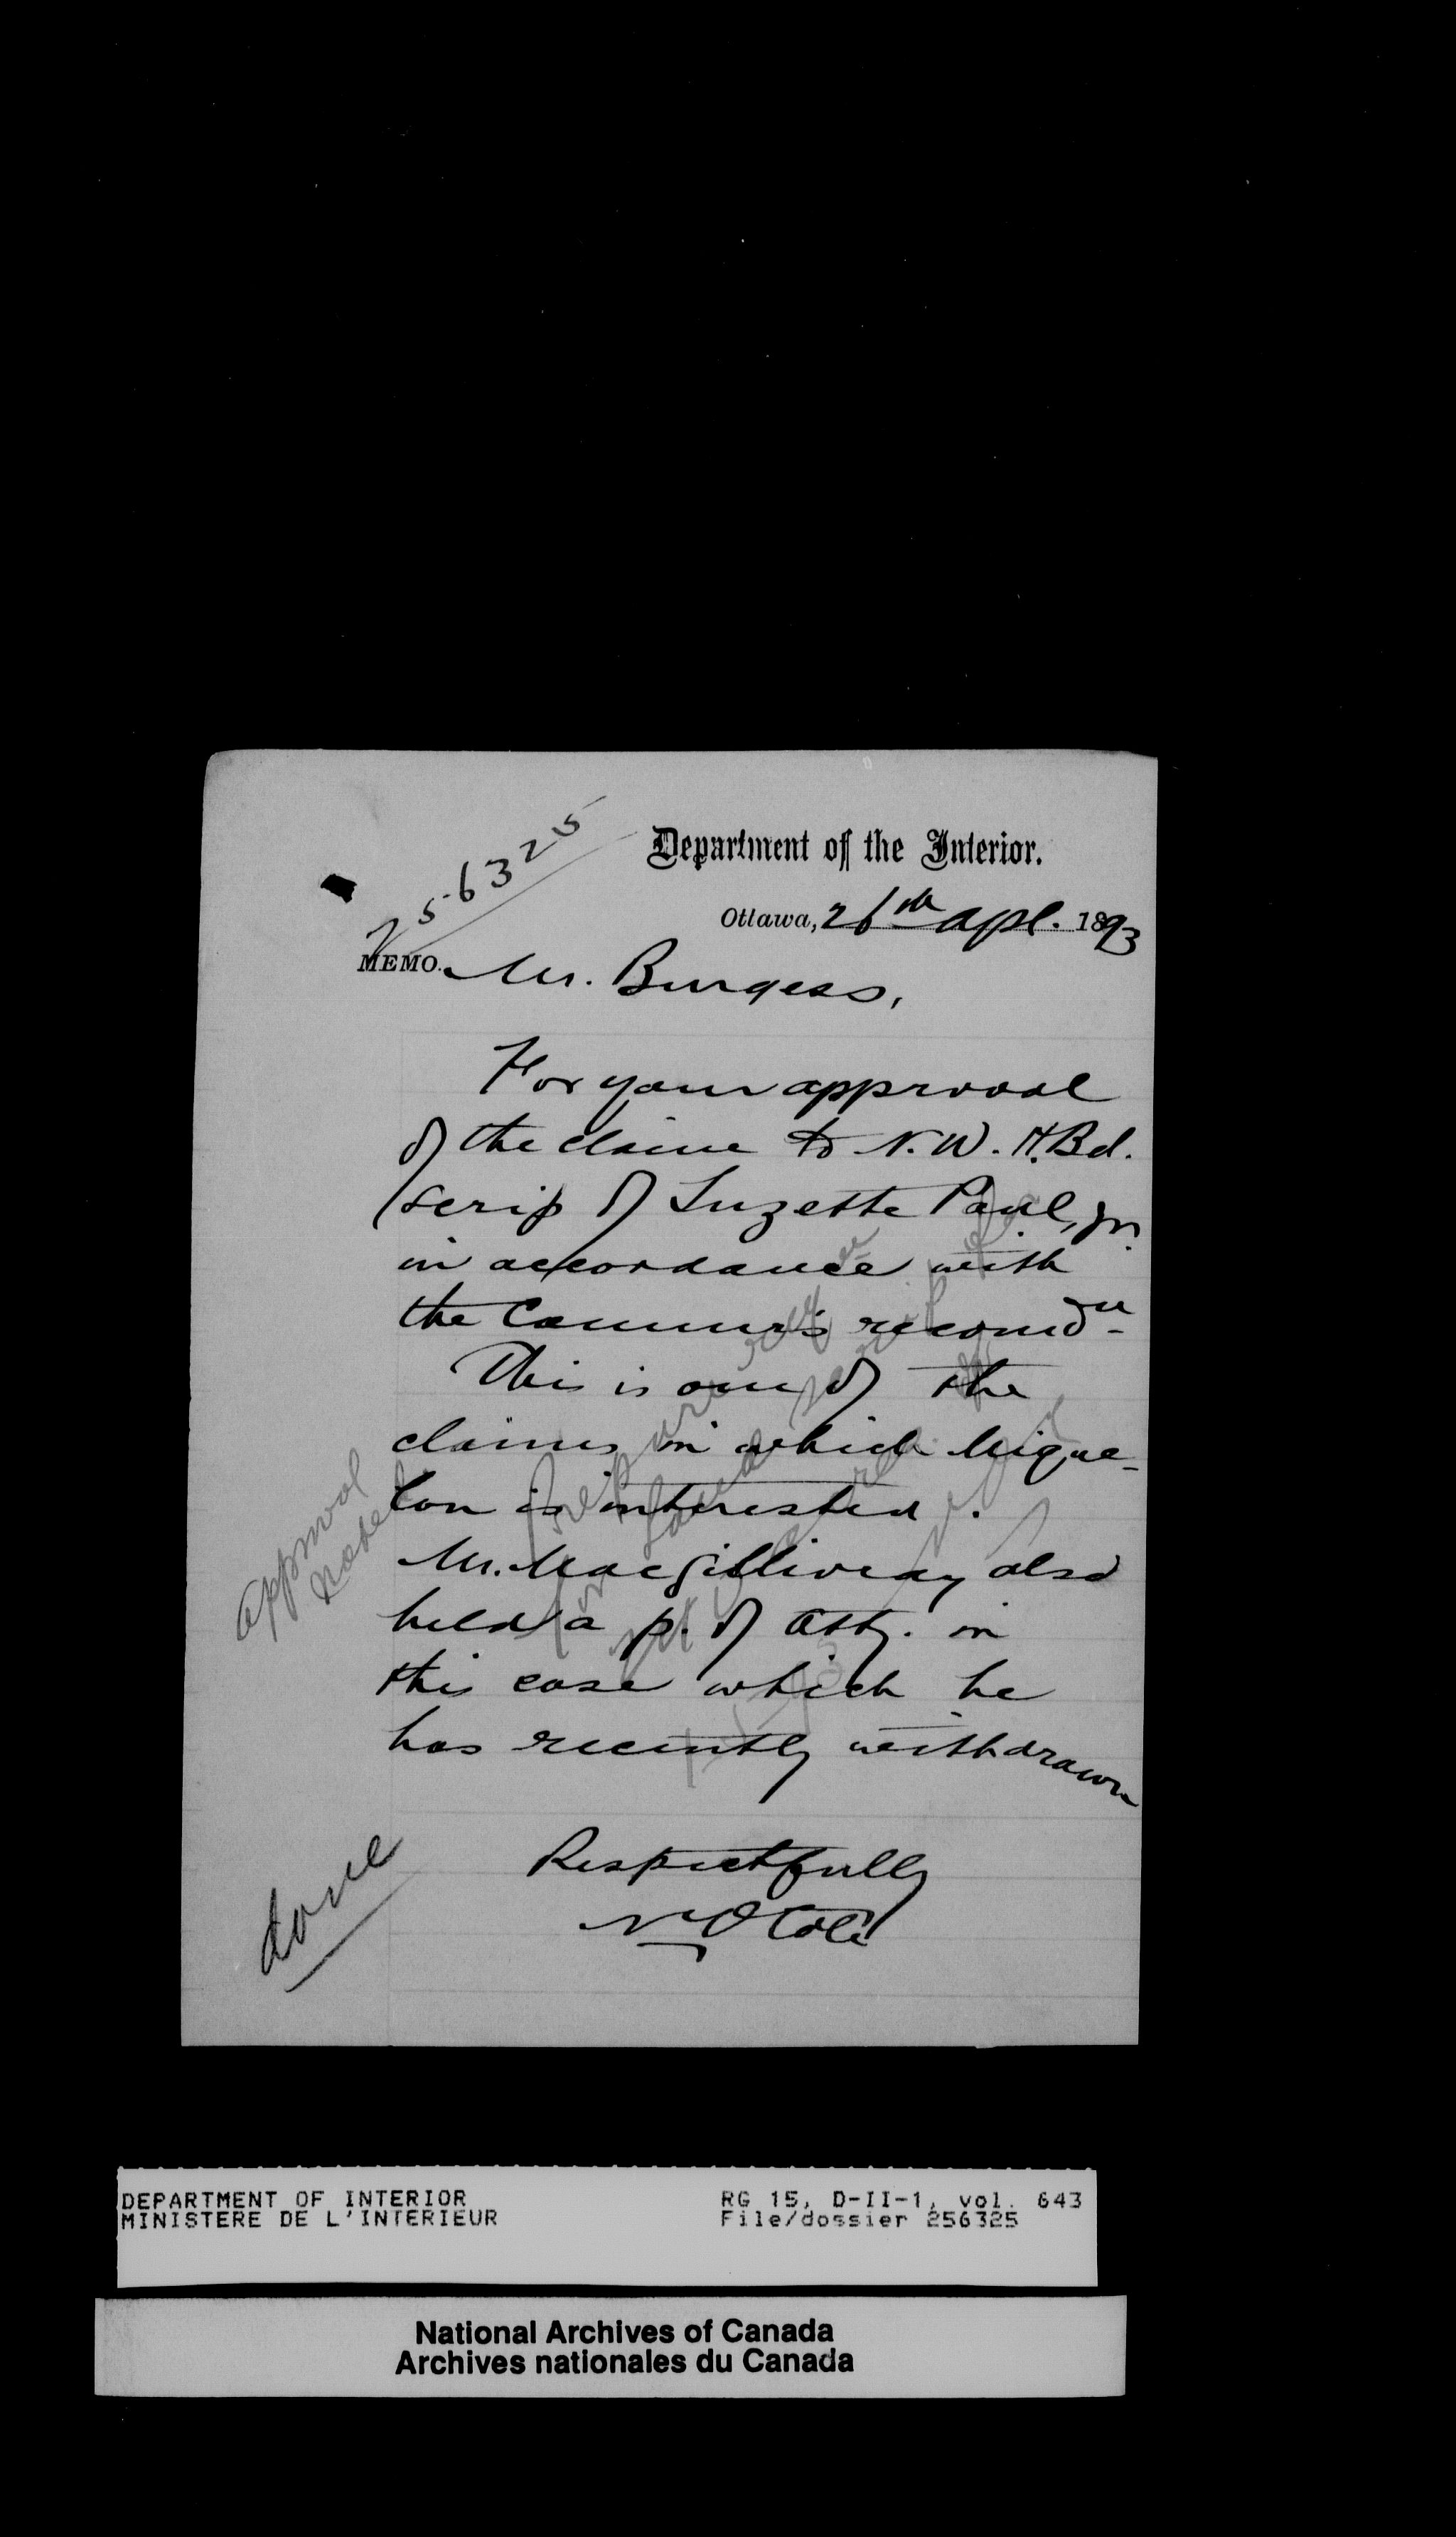 256325
Department of the Interior.
Ottawa, 26th Apl. 1893
MEMO. Mr. Burgess,
For your approval
of the claim to N.W. H.Bd.
scrip of Suzette Paul, jr.
in accordance with
the Commr's recomdn.
This is one of the
claims in which Migne-
ron is interested.
Mr. MacGillivray also
held a p. of Atty. in
this case which he
has recently withdrawn
Respectfully
N O Coté
Approval
noted
done
DEPARTMENT OF INTERIOR
MINISTERE DE L'INTERIEUR
RG 15, D-II-1, vol. 643
File/dossier 256325
National Archives of Canada
Archives nationales du Canada